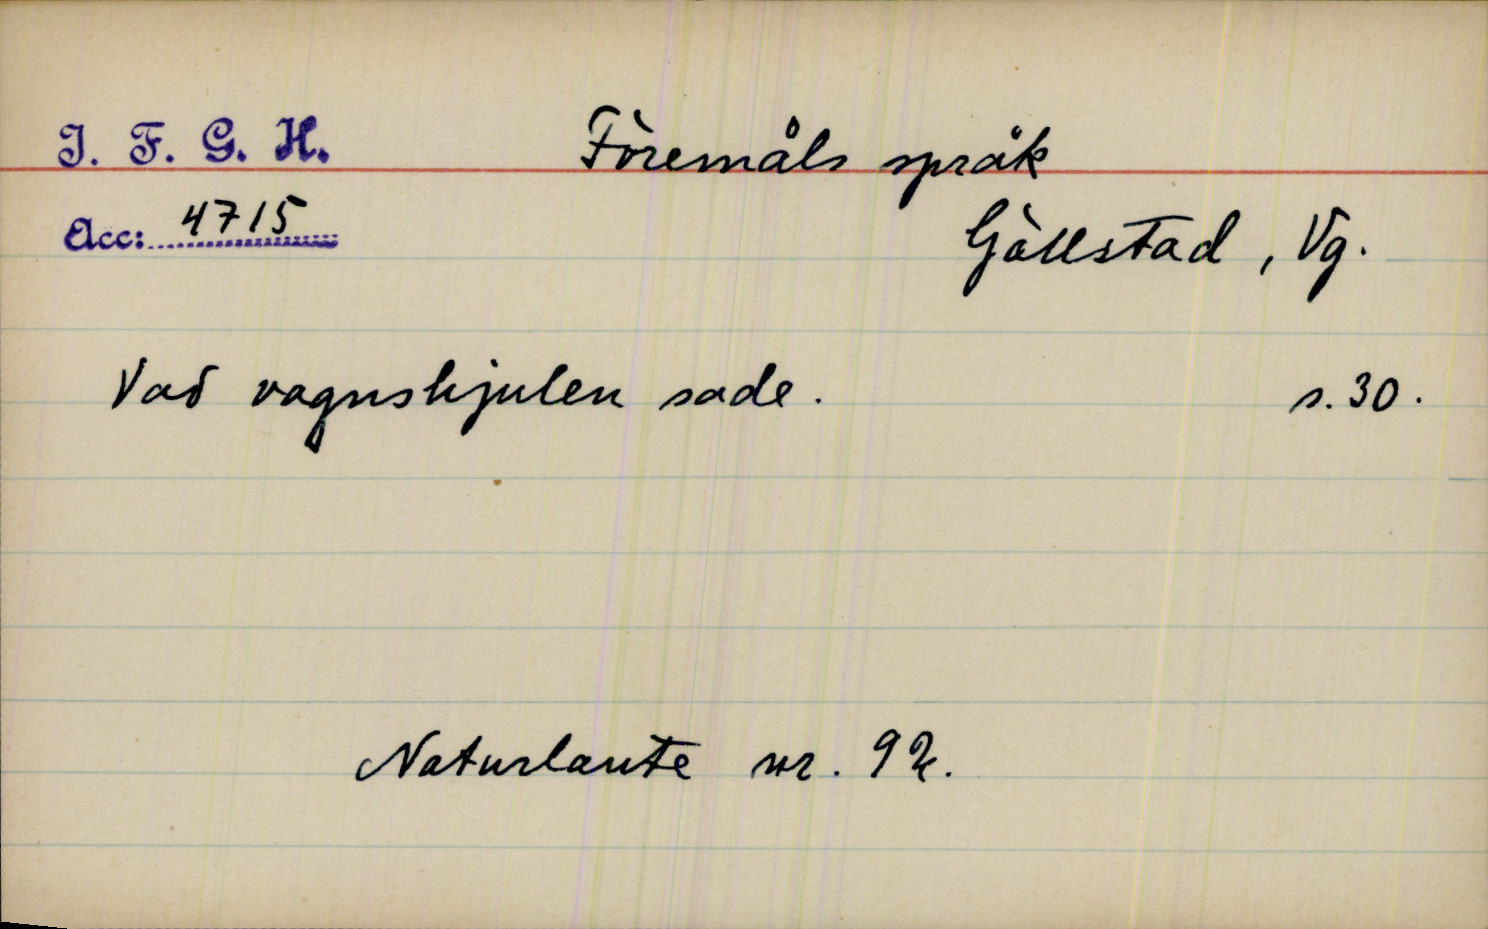 I. F. G. H. Föremåls språk
Acc: 4715 Gällstad, Vg.
Vad vagnshjulen sade. s. 30.
Naturlaute nr. 92.